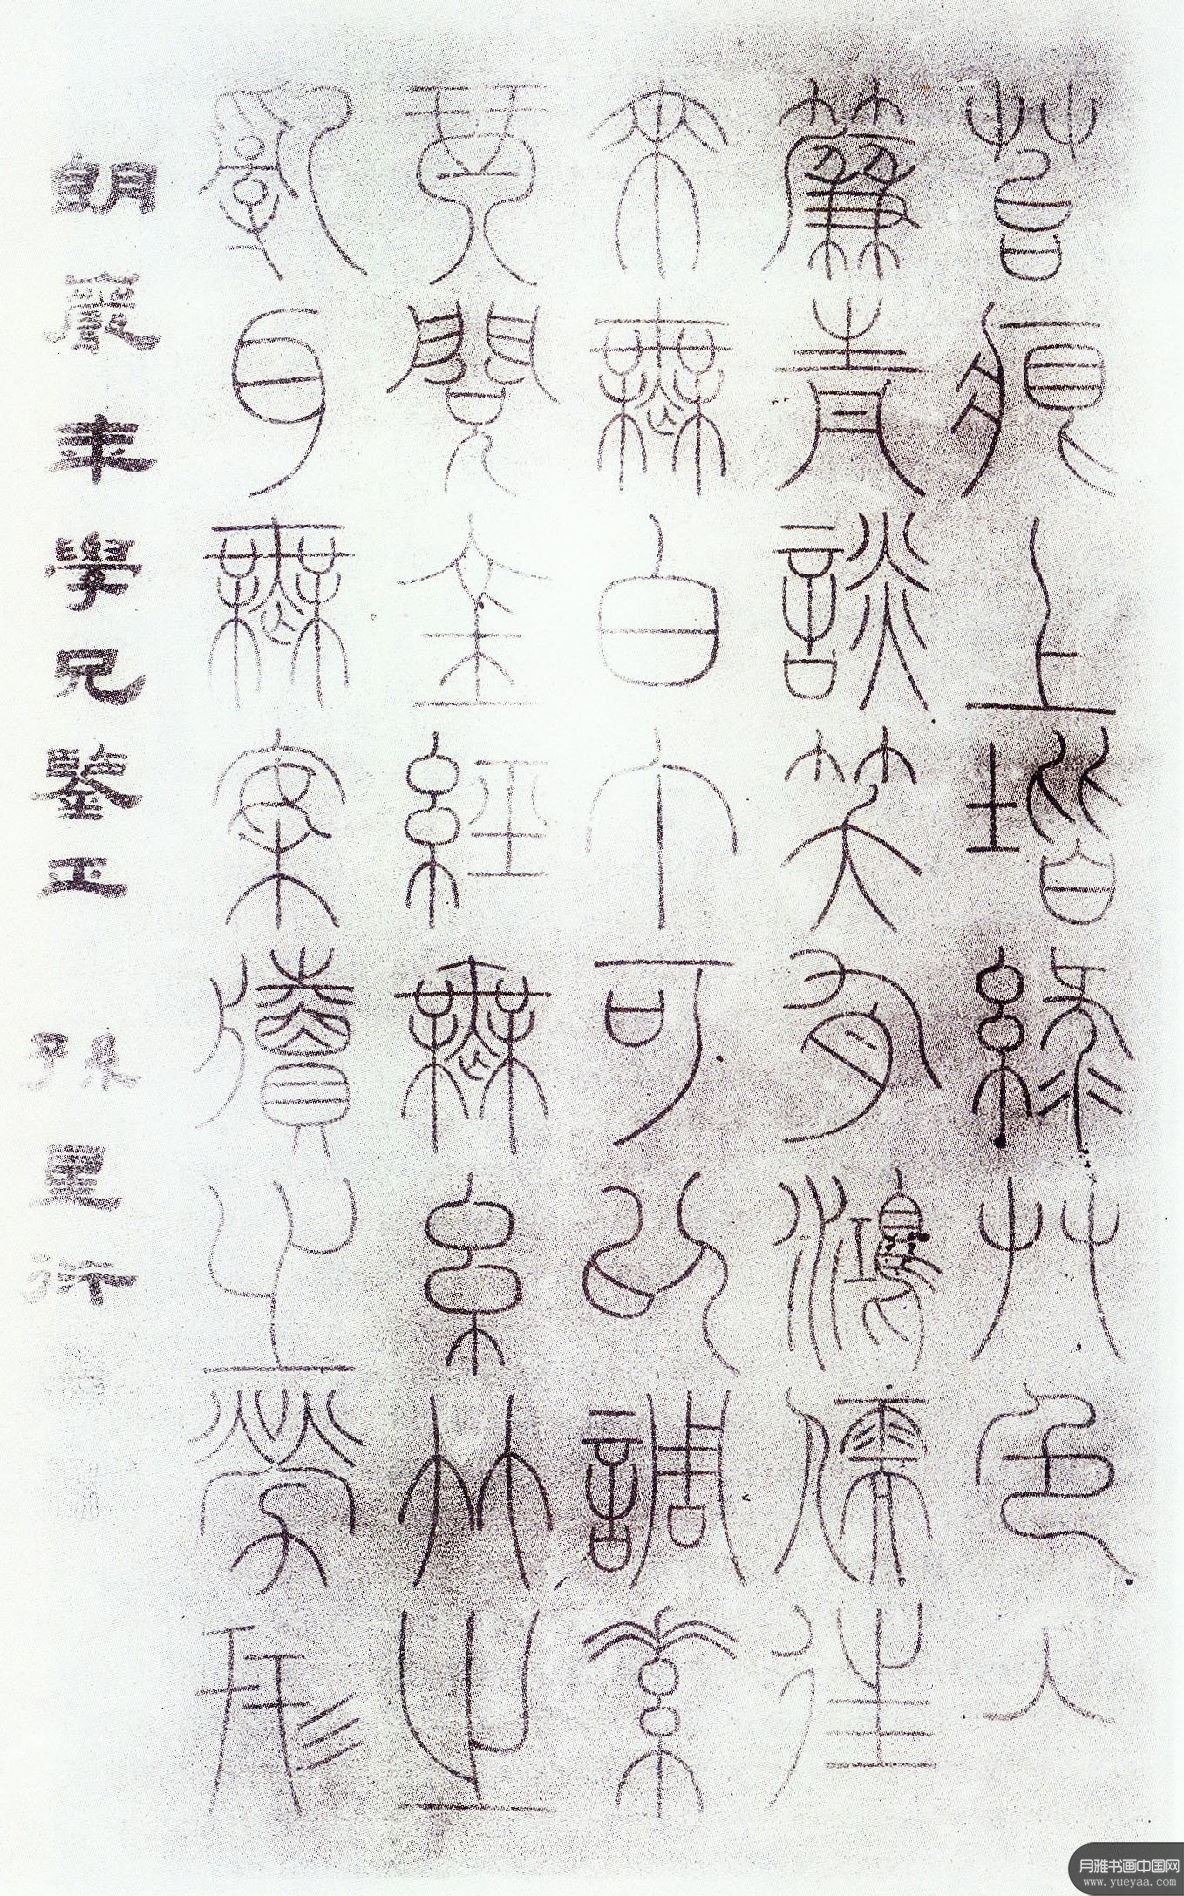 苔痕上堦綠艸色入
簾青談笑有鴻儒往
來無白丁可以調素
琴閱金經無糸竹之
亂耳無案牘之勞形
朗巖年學兄鑒正 孫星衍
月雅书画中国网
www.yueyaa.com